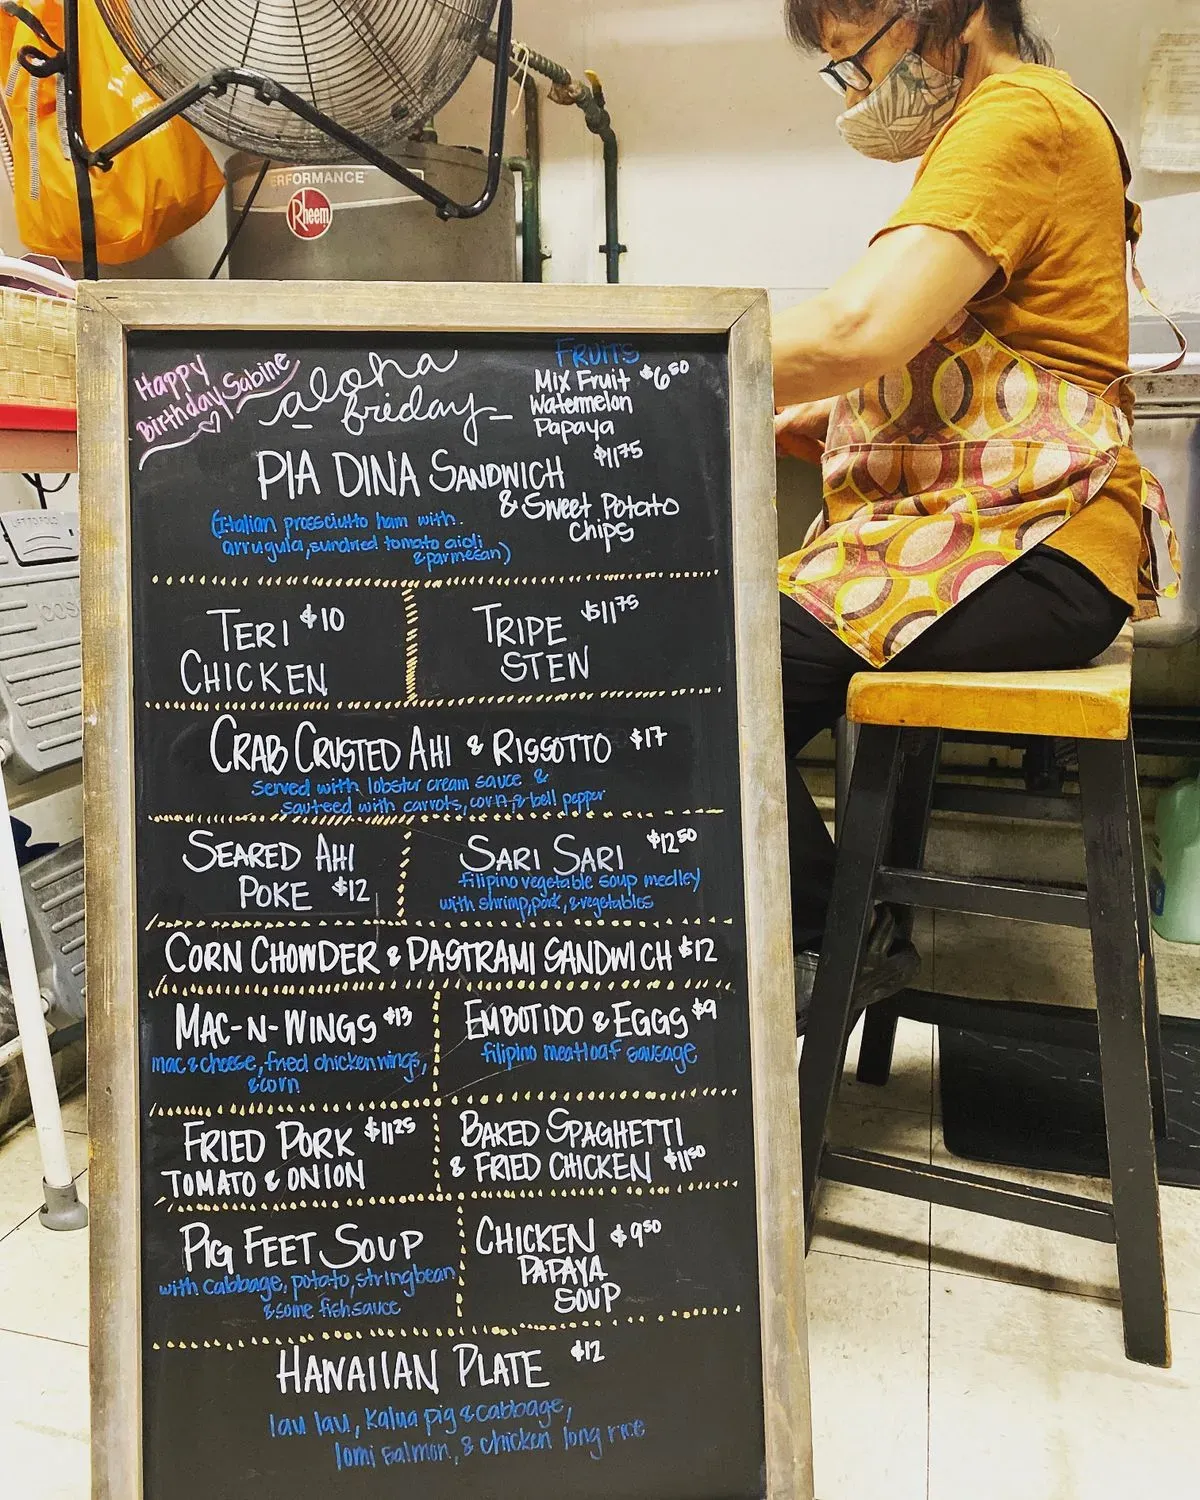 ERFORMANCE
Rheem
LIFT TO FOLD
Happy
Birthday Sabine
aloha
friday
FRUITS
Mix Fruit $6.50
Watermelon
Papaya
PIA DINA SANDWICH $11.75
& Sweet Potato
Chips
(Italian prossciutto ham with
arrugula, sundried tomato aioli
& parmesan)
TERI $10
CHICKEN
TRIPE $11.75
STEW
CRAB CRUSTED AHI & RISSOTTO $17
served with lobster cream sauce &
sauteed with carrots, corn & bell pepper
SEARED AHI
POKE $12
SARI SARI $12.50
filipino vegetable soup medley
with shrimp, pork, & vegetables
CORN CHOWDER & PASTRAMI SANDWICH $12
MAC-N-WINGS $13
mac & cheese, fried chicken wings,
& corn
EMBOTIDO & EGGS $9
filipino meatloaf sausage
FRIED PORK $11.25
TOMATO & ONION
BAKED SPAGHETTI
& FRIED CHICKEN $11.50
PIG FEET SOUP
with cabbage, potato, stringbean
& some fish sauce
CHICKEN $9.50
PAPAYA
SOUP
HAWAIIAN PLATE $12
lau lau, kalua pig & cabbage,
lomi salmon, & chicken long rice